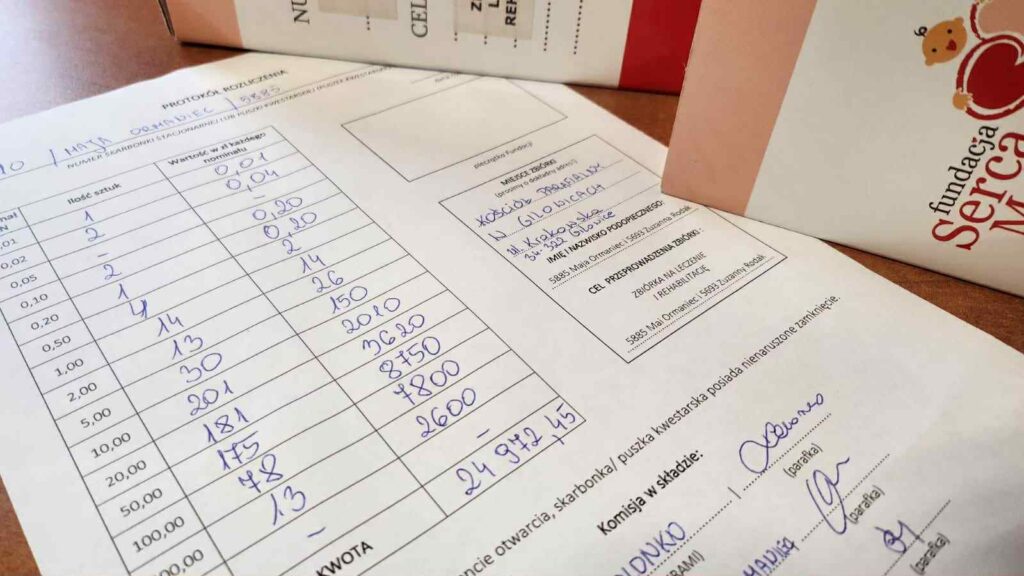 NU
CEL
Z
L
REH
fundacja
Serca
M
PROTOKÓŁ ROZLICZENIA
10 / MAJA ORMANIEC / 5885
NUMER SKARBONKI STACJONARNEJ LUB PUSZKI KWESTARSKIEJ
pieczątka Fundacji
nał Ilość sztuk Wartość w zł każdego nominału
N
,01 1 0,01
0,02 2 0,04
0,05 - -
0,10 2 0,20
0,20 1 0,20
0,50 4 2
1,00 14 14
2,00 13 26
5,00 30 150
10,00 201 2010
20,00 181 3620
50,00 175 8750
100,00 78 7800
00,00 13 2600
- -
KWOTA 24 972,45
MIEJSCE ZBIÓRKI
(prosimy o dokładny adres):
KOŚCIÓŁ PARAFIALNY
W GILOWICACH
Ul. Krakowska
34-322 Gilowice
IMIĘ I NAZWISKO PODOPIECZNEGO:
5885 Maja Ormaniec i 5693 Zuzanna Rodak
CEL PRZEPROWADZENIA ZBIÓRKI :
ZBIÓRKA NA LECZENIE
I REHABILITACJĘ
5885 Mai Ormaniec i 5693 Zuzanny Rodak
ncie otwarcia, skarbonka/ puszka kwestarska posiada nienaruszone zamknięcie.
Komisja w składzie:
(parafka)
(parafka)
(parafka)